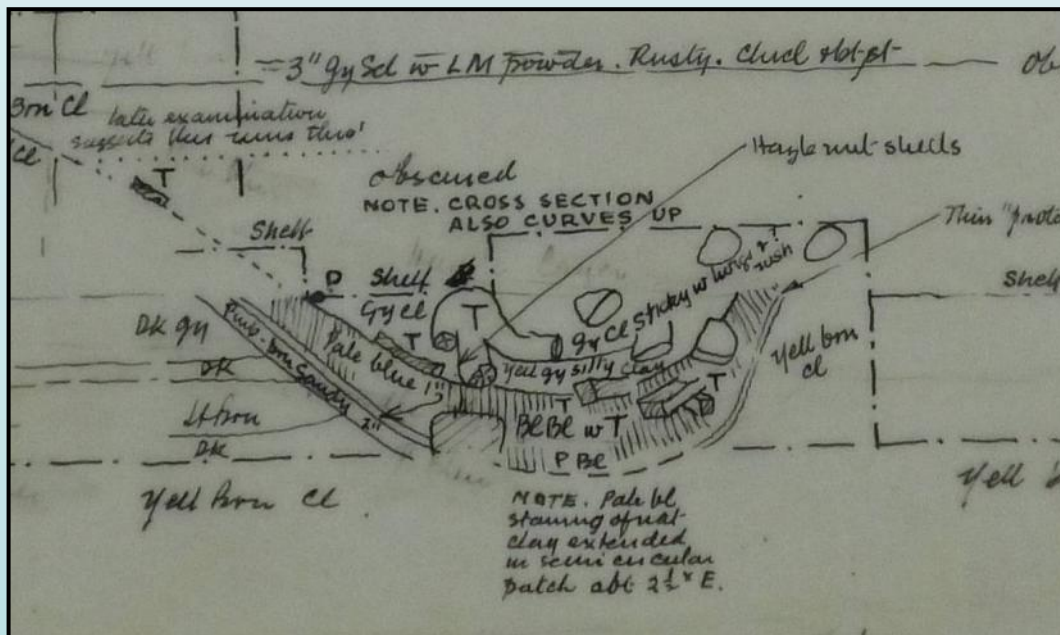 = 3" gy Scl w LM powder. Rusty.
Brn Cl
Cl
late examination
suggests this runs thus'
T
obscured
NOTE. CROSS SECTION
ALSO CURVES UP
Hazle nut shells
Thin "proto
Shelf
Shelf
Shelf
D
Gy Cl
T
T
gy Cl Sticky w
rush
Yell gy silty clay
Yell brn
cl
DK gy
Pink-brn Sandy 2"
Pale blue 1"
DK
Lt Brn
DK
T
T
Bl Bl w T
P Bl
Yell brn Cl
Yell
NOTE. Pale bl
staining of nat
clay extended
in semi circular
patch abt 2½" E.